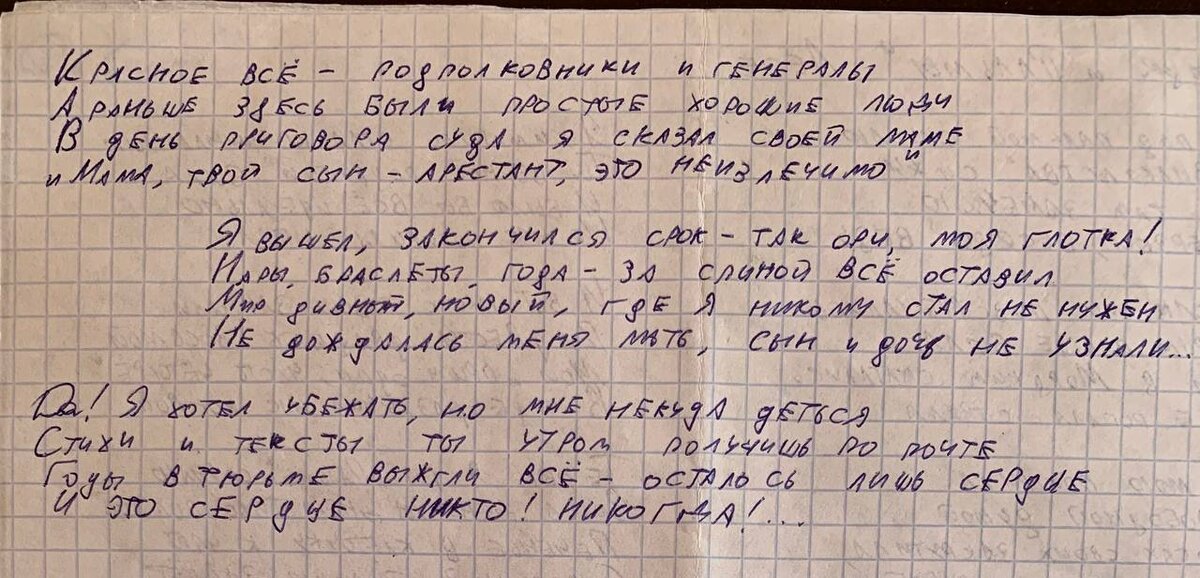 Красное всё – подполковники и генералы
А раньше здесь были простые хорошие люди
В день приговора суда я сказал своей маме
"Мама, твой сын – арестант, это неизлечимо"
Я вышел, закончился срок – так ори, моя глотка!
Нары, браслеты, года – за спиной всё оставил
Мир дивный, новый, где я никому стал не нужен
Не дождалась меня мать, сын и дочь не узнали...
Да! Я хотел убежать, но мне некуда деться
Стихи и тексты ты утром получишь по почте
Годы в тюрьме выжгли всё – осталось лишь сердце
И это сердце никто! Никогда!...